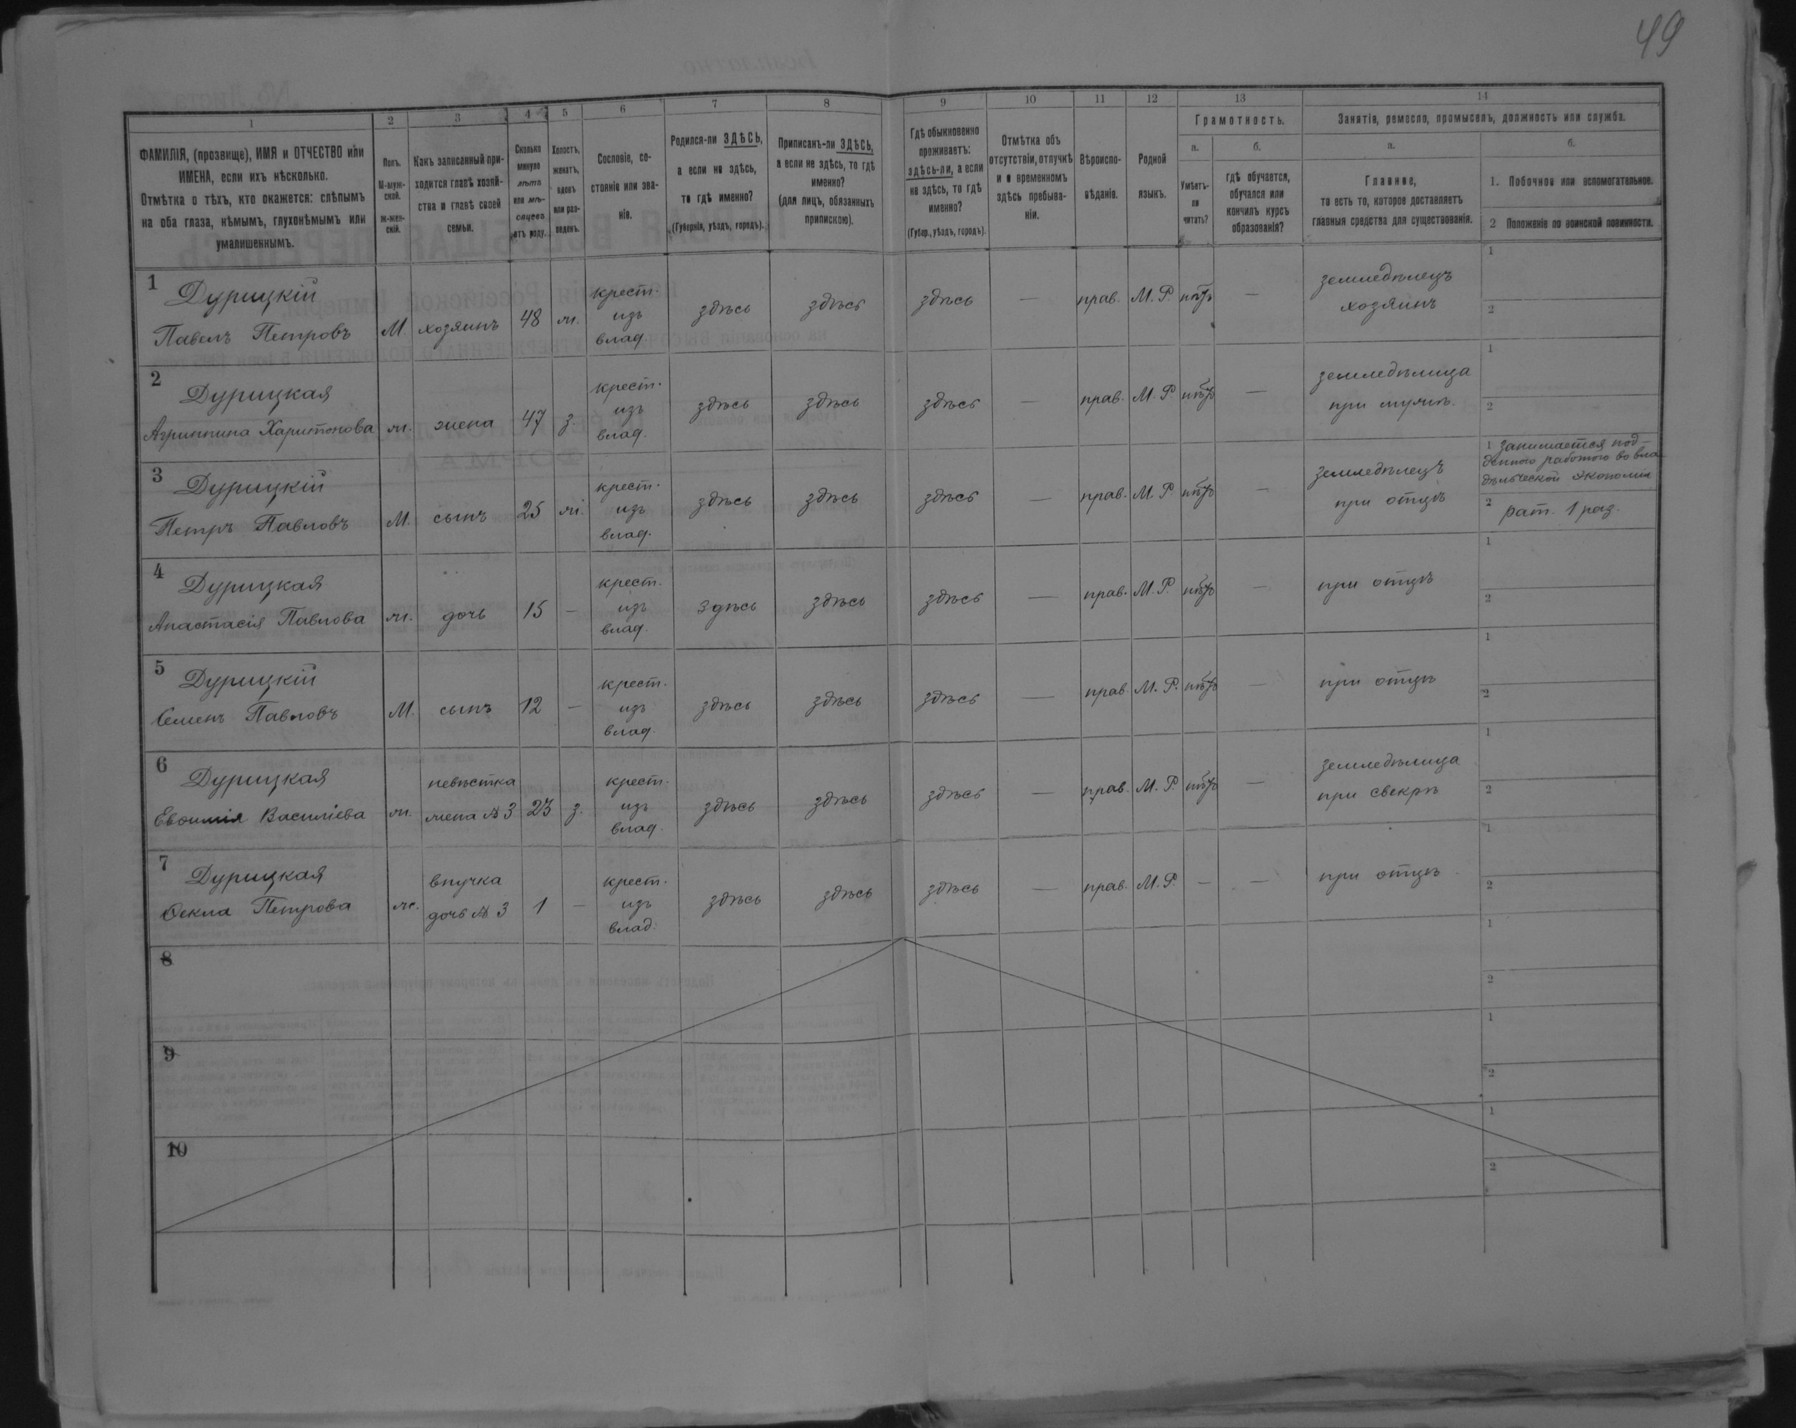 49
1 2 3 4 5 6 7 8 9 10 11 12 13 14
ФАМИЛІЯ, (прозвище), ИМЯ и ОТЧЕСТВО или
ИМЕНА, если ихъ нѣсколько.
Отмѣтка о тѣхъ, кто окажется: слѣпымъ
на оба глаза, нѣмымъ, глухонѣмымъ или
умалишеннымъ.
Полъ.
М-муж-
ской.
Ж-жен-
скій.
Какъ записанный при-
ходится главѣ хозяй-
ства и главѣ своей
семьи.
Сколько
минуло
лѣтъ
или мѣ-
сяцевъ
отъ роду.
Холостъ,
женатъ,
вдовъ
или раз-
веденъ.
Сословіе, со-
стояніе или зва-
ніе.
Родился-ли ЗДѢСЬ,
а если не здѣсь,
то гдѣ именно?
(Губернія, уѣздъ, городъ).
Приписанъ-ли ЗДѢСЬ,
а если не здѣсь, то гдѣ
именно?
(для лицъ, обязанныхъ
припискою).
Гдѣ обыкновенно
проживаетъ:
здѣсь-ли, а если
не здѣсь, то гдѣ
именно?
(Губер., уѣздъ, городъ).
Отмѣтка объ
отсутствіи, отлучкѣ
и о временномъ
здѣсь пребыва-
ніи.
Вѣроиспо-
вѣданіе.
Родной
языкъ.
Грамотность.
а.
Умѣетъ-
ли
читать?
б.
гдѣ обучается,
обучался или
кончилъ курсъ
образованія?
Занятіе, ремесло, промыселъ, должность или служба.
а.
Главное,
то есть то, которое доставляетъ
главныя средства для существованія.
б.
1. Побочное или вспомогательное.
2 Положеніе по воинской повинности.
1
Дурицкій
Павелъ Петровъ
М
хозяинъ
48
ж.
крест.
изъ
влад.
здѣсь
здѣсь
здѣсь
—
прав.
М. Р.
нѣтъ
—
земледѣлецъ
хозяинъ
1
2
2
Дурицкая
Агриппина Харитонова
ж.
жена
47
з.
крест.
изъ
влад.
здѣсь
здѣсь
здѣсь
—
прав.
М. Р
нѣтъ
—
земледѣлица
при мужѣ.
1
2
3
Дурицкій
Петръ Павловъ
М.
сынъ
25
ж.
крест.
изъ
влад.
здѣсь
здѣсь
здѣсь
—
прав.
М. Р
нѣтъ
—
земледѣлецъ
при отцѣ
1 занимается под-
денною работою во вла-
дѣльческой экономіи
2 рат. 1 раз.
4
Дурицкая
Анастасія Павлова
ж.
дочь
15
—
крест.
изъ
влад.
здѣсь
здѣсь
здѣсь
—
прав.
М. Р.
нѣтъ
—
при отцѣ
1
2
5
Дурицкій
Семенъ Павловъ
М.
сынъ
12
—
крест.
изъ
влад.
здѣсь
здѣсь
здѣсь
—
прав.
М. Р.
нѣтъ
—
при отцѣ
1
2
6
Дурицкая
Евѳимія Василіева
ж.
невѣстка
жена № 3
23
з.
крест.
изъ
влад.
здѣсь
здѣсь
здѣсь
—
прав.
М. Р
нѣтъ
—
земледѣлица
при свекрѣ
1
2
7
Дурицкая
Ѳекла Петрова
ж.
внучка
дочь № 3
1
—
крест.
изъ
влад.
здѣсь
здѣсь
здѣсь
—
прав.
М. Р.
—
—
при отцѣ
1
2
8
1
2
9
1
2
10
1
2